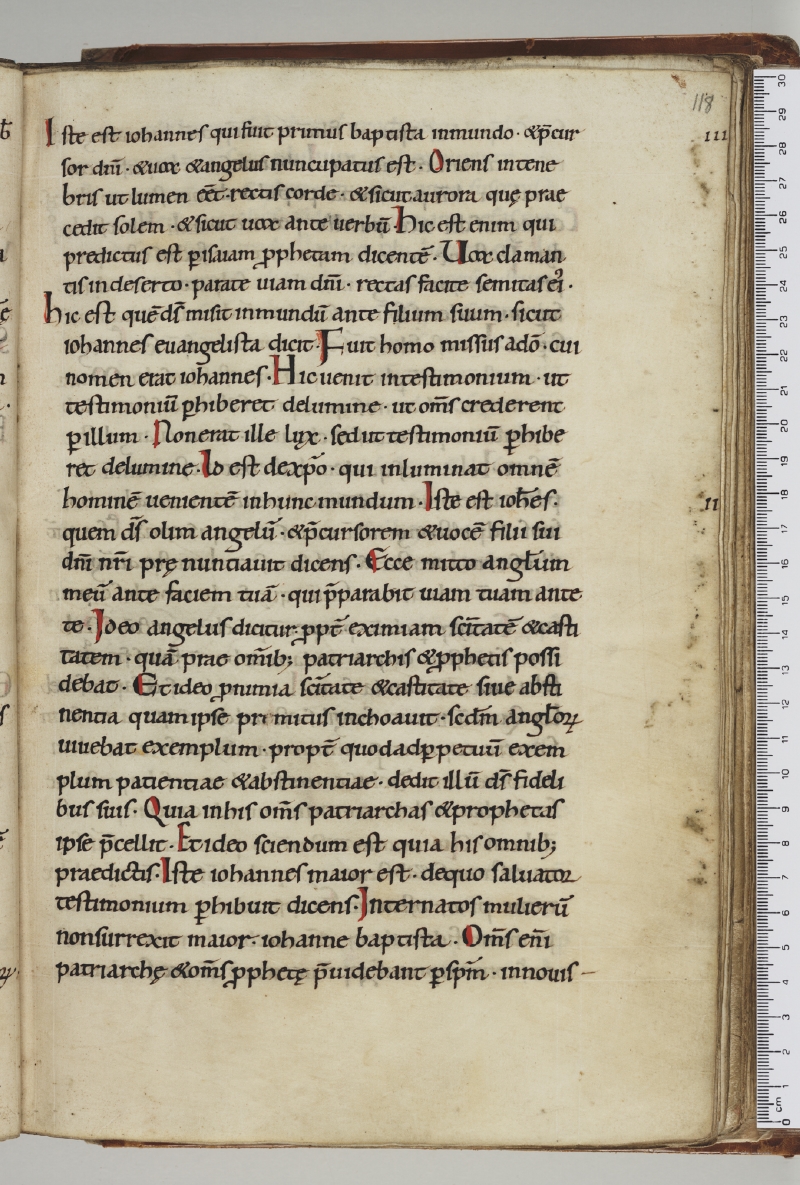 118
Iste est iohannes qui fuit primus baptista inmundo · &p̄cur
III
sor dn̄i · &uox &angelus nuncupatus est · Oriens intene
bris ut lumen eēt · rectis corde · &sicut aurora quę prae
cedit solem · &sicut uox ante uerbū · hic est enim qui
predictus est ꝑ isaiam ꝓphetam dicentē · Uox claman
tis indeserto · parate uiam dn̄i · rectas facite semitas ei᾽ ·
hic est quē ds̄ misit inmundū ante filium suum · sicut
iohannes euangelista dicit · Fuit homo missus adō · cui
nomen erat iohannes · Hic uenit intestimonium · ut
testimoniū ꝑhiberet delumine · ut om̄s crederent
ꝑ illum · Non erat ille lux · sed ut testimoniū ꝑhibe
ret delumine · Id est dexp̄o · qui inluminat omnē
hominē uenientē inhunc mundum · Iste est ioh̄es ·
II
quem ds̄ olim angelū · &p̄cursorem &uocē filii sui
dn̄i nr̄i prę nuntiauit dicens · Ecce mitto angl̄um
meū ante faciem tuā · qui p̄parabit uiam tuam ante
te · Ideo angelus dicitur ꝓpt̄ eximiam sc̄itatē &casti
tatem · quā prae omib; patriarchis &ꝓphetis possi
debat · Et ideo ꝓ nimia sc̄itate &castitate siue absti
nentia quam ipse primitus inchoauit · scdm̄ angl̄oꝝ
uiuebat exemplum · propt̄ quod adꝑpetuū exem
plum patientiae &abstinentiae · dedit illū ds̄ fideli
bus suis · Quia inhis om̄s patriarchas &prophetas
ipse p̄cellit · Et ideo sciendum est quia his omnib;
praedictis · Iste iohannes maior est · dequo saluator
testimonium ꝑhibuit dicens · Internatos mulierū
nonsurrexit maior · iohanne baptista · Om̄s eni̅
patriarchę &om̄s ꝓphetę p̄uidebant ꝑ sp̄m · innouis